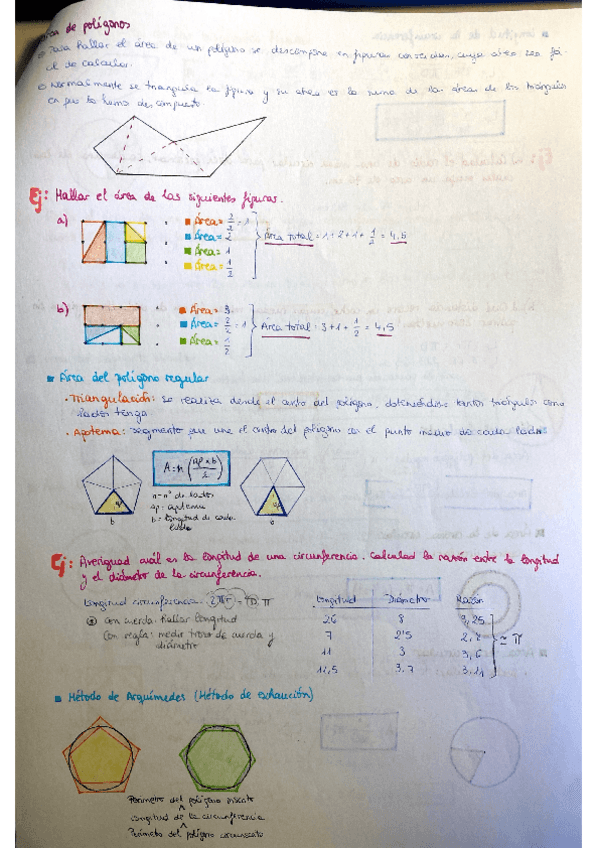 Área de polígonos
Para hallar el área de un polígono se descompone en figuras conocidas, cuyo área sea fá-
cil de calcular.
Normalmente se triangula la figura y su área es la suma de las áreas de los triángulos
en que lo hemos descompuesto.
Ej: Hallar el área de las siguientes figuras.
a) Área = 2/2 = 1
Área = 2
Área = 1
Área = 1/2
Área total = 1+2+1+1/2 = 4,5
b) Área = 3
Área = 2/2 = 1
Área = 1/2
Área total = 3+1+1/2 = 4,5
Área del polígono regular
· Triangulación: se realiza desde el centro del polígono, obteniéndose tantos triángulos como
lados tenga
· Apotema: segmento que une el centro del polígono con el punto medio de cada lado
A = n (ap × b / 2)
n = nº de lados
ap = apotema
b = longitud de cada
lado
ap
b
ap
b
Ej: Averiguad cuál es la longitud de una circunferencia. Calculad la razón entre la longitud
y el diámetro de la circunferencia.
Longitud circunferencia: 2πr = D π
Con cuerda: hallar longitud
Con regla: medir trozo de cuerda y
diámetro
Longitud Diámetro Razón
26 8 3,25
7 2'5 2,8
11 3 3,6
11,5 3,7 3,11
≈ π
Método de Arquímedes (Método de exhaución)
Perímetro del polígono inscrito
longitud de la circunferencia
Perímetro del polígono circunscrito